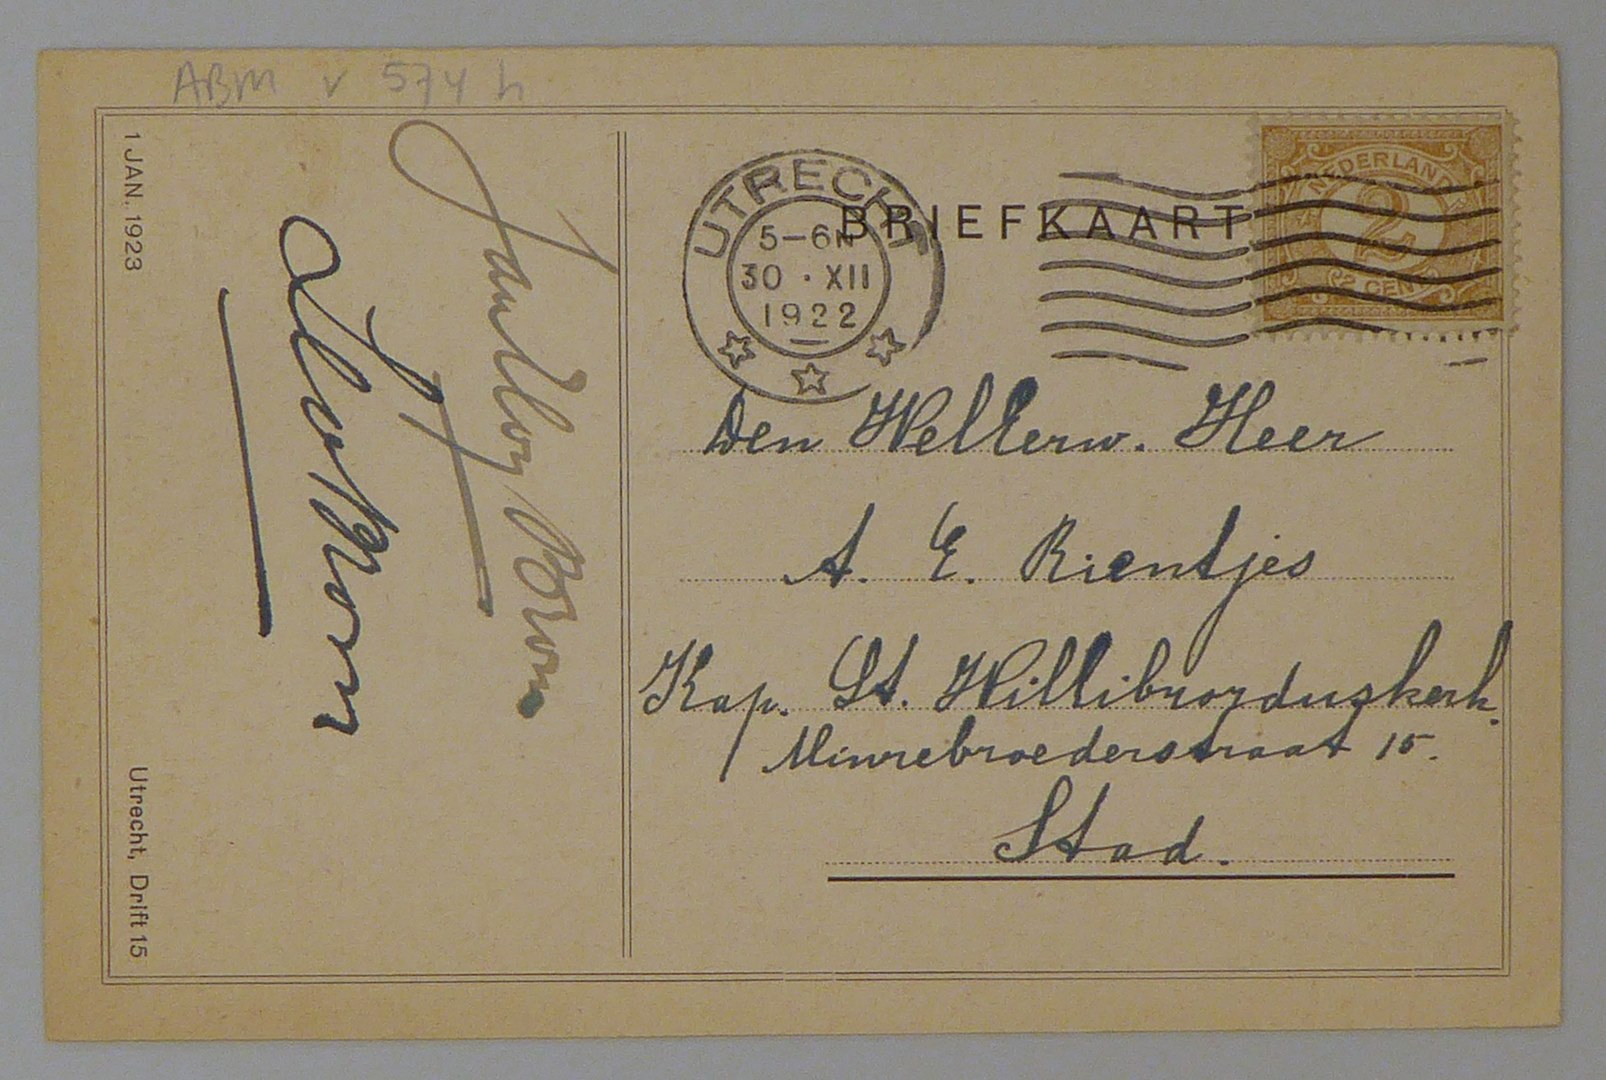 ABM v 574 h
1 JAN. 1923
Utrecht, Drift 15
Jan Eloy Brom
Leo Brom
UTRECHT
5–6N
30 · XII
1922
BRIEFKAART
NEDERLAND
2
2 CENT
Den WelEerw. Heer
A. E. Rientjes
Kap. St. Willibrorduskerk.
Minrebroederstraat 15.
Stad.